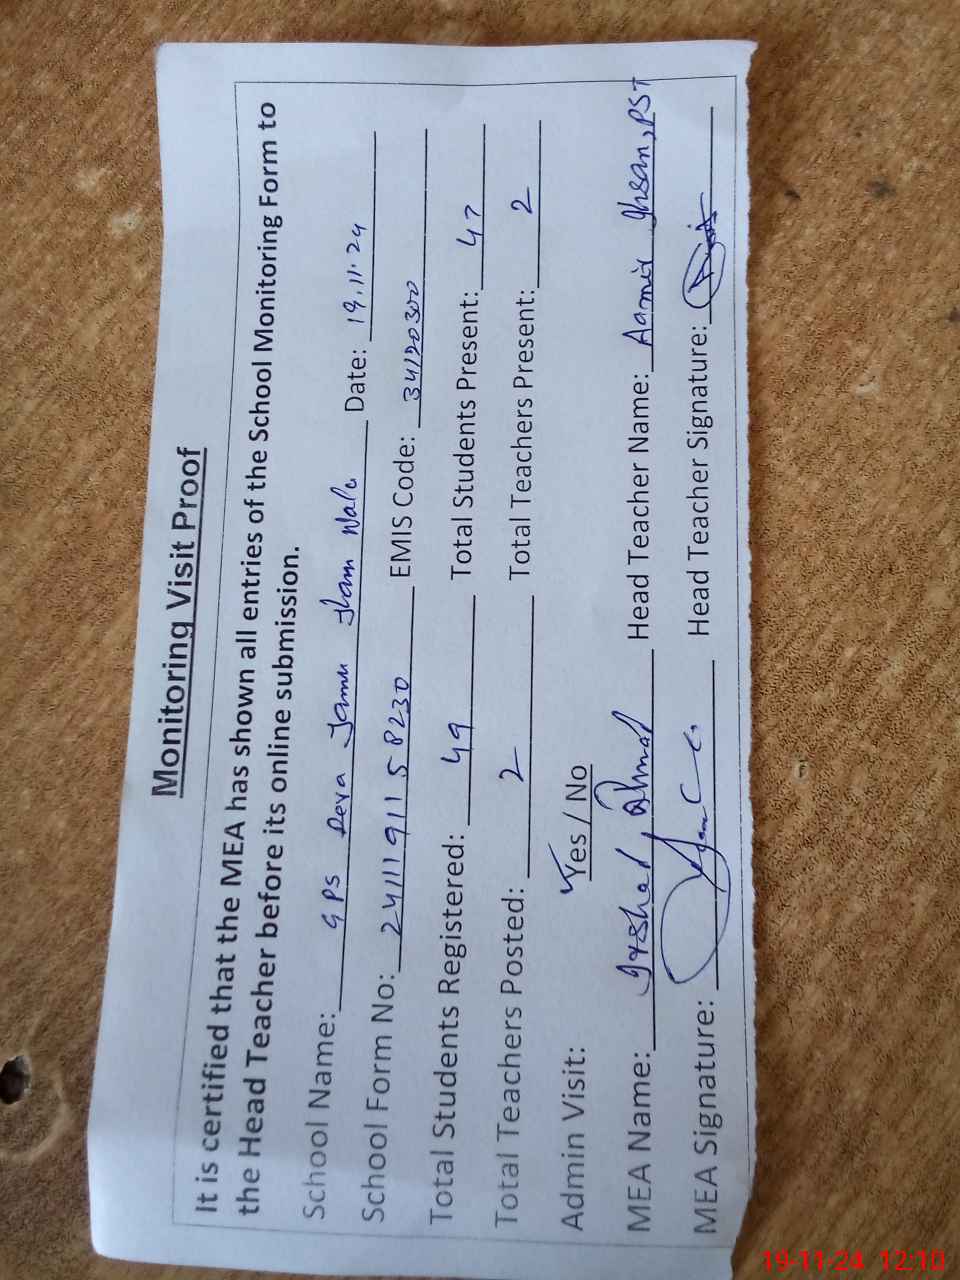 Monitoring Visit Proof
It is certified that the MEA has shown all entries of the School Monitoring Form to
the Head Teacher before its online submission.
School Name: GPS Deva Jamu Sham Wala Date: 19.11.24
School Form No: 24111911 58230 EMIS Code: 34120300
Total Students Registered: 49 Total Students Present: 47
Total Teachers Posted: 2 Total Teachers Present: 2
Admin Visit: Yes / No
MEA Name: Irshad Ahmad Head Teacher Name: Aamir Ihsan, PST
MEA Signature: Head Teacher Signature:
19-11-24 12:10